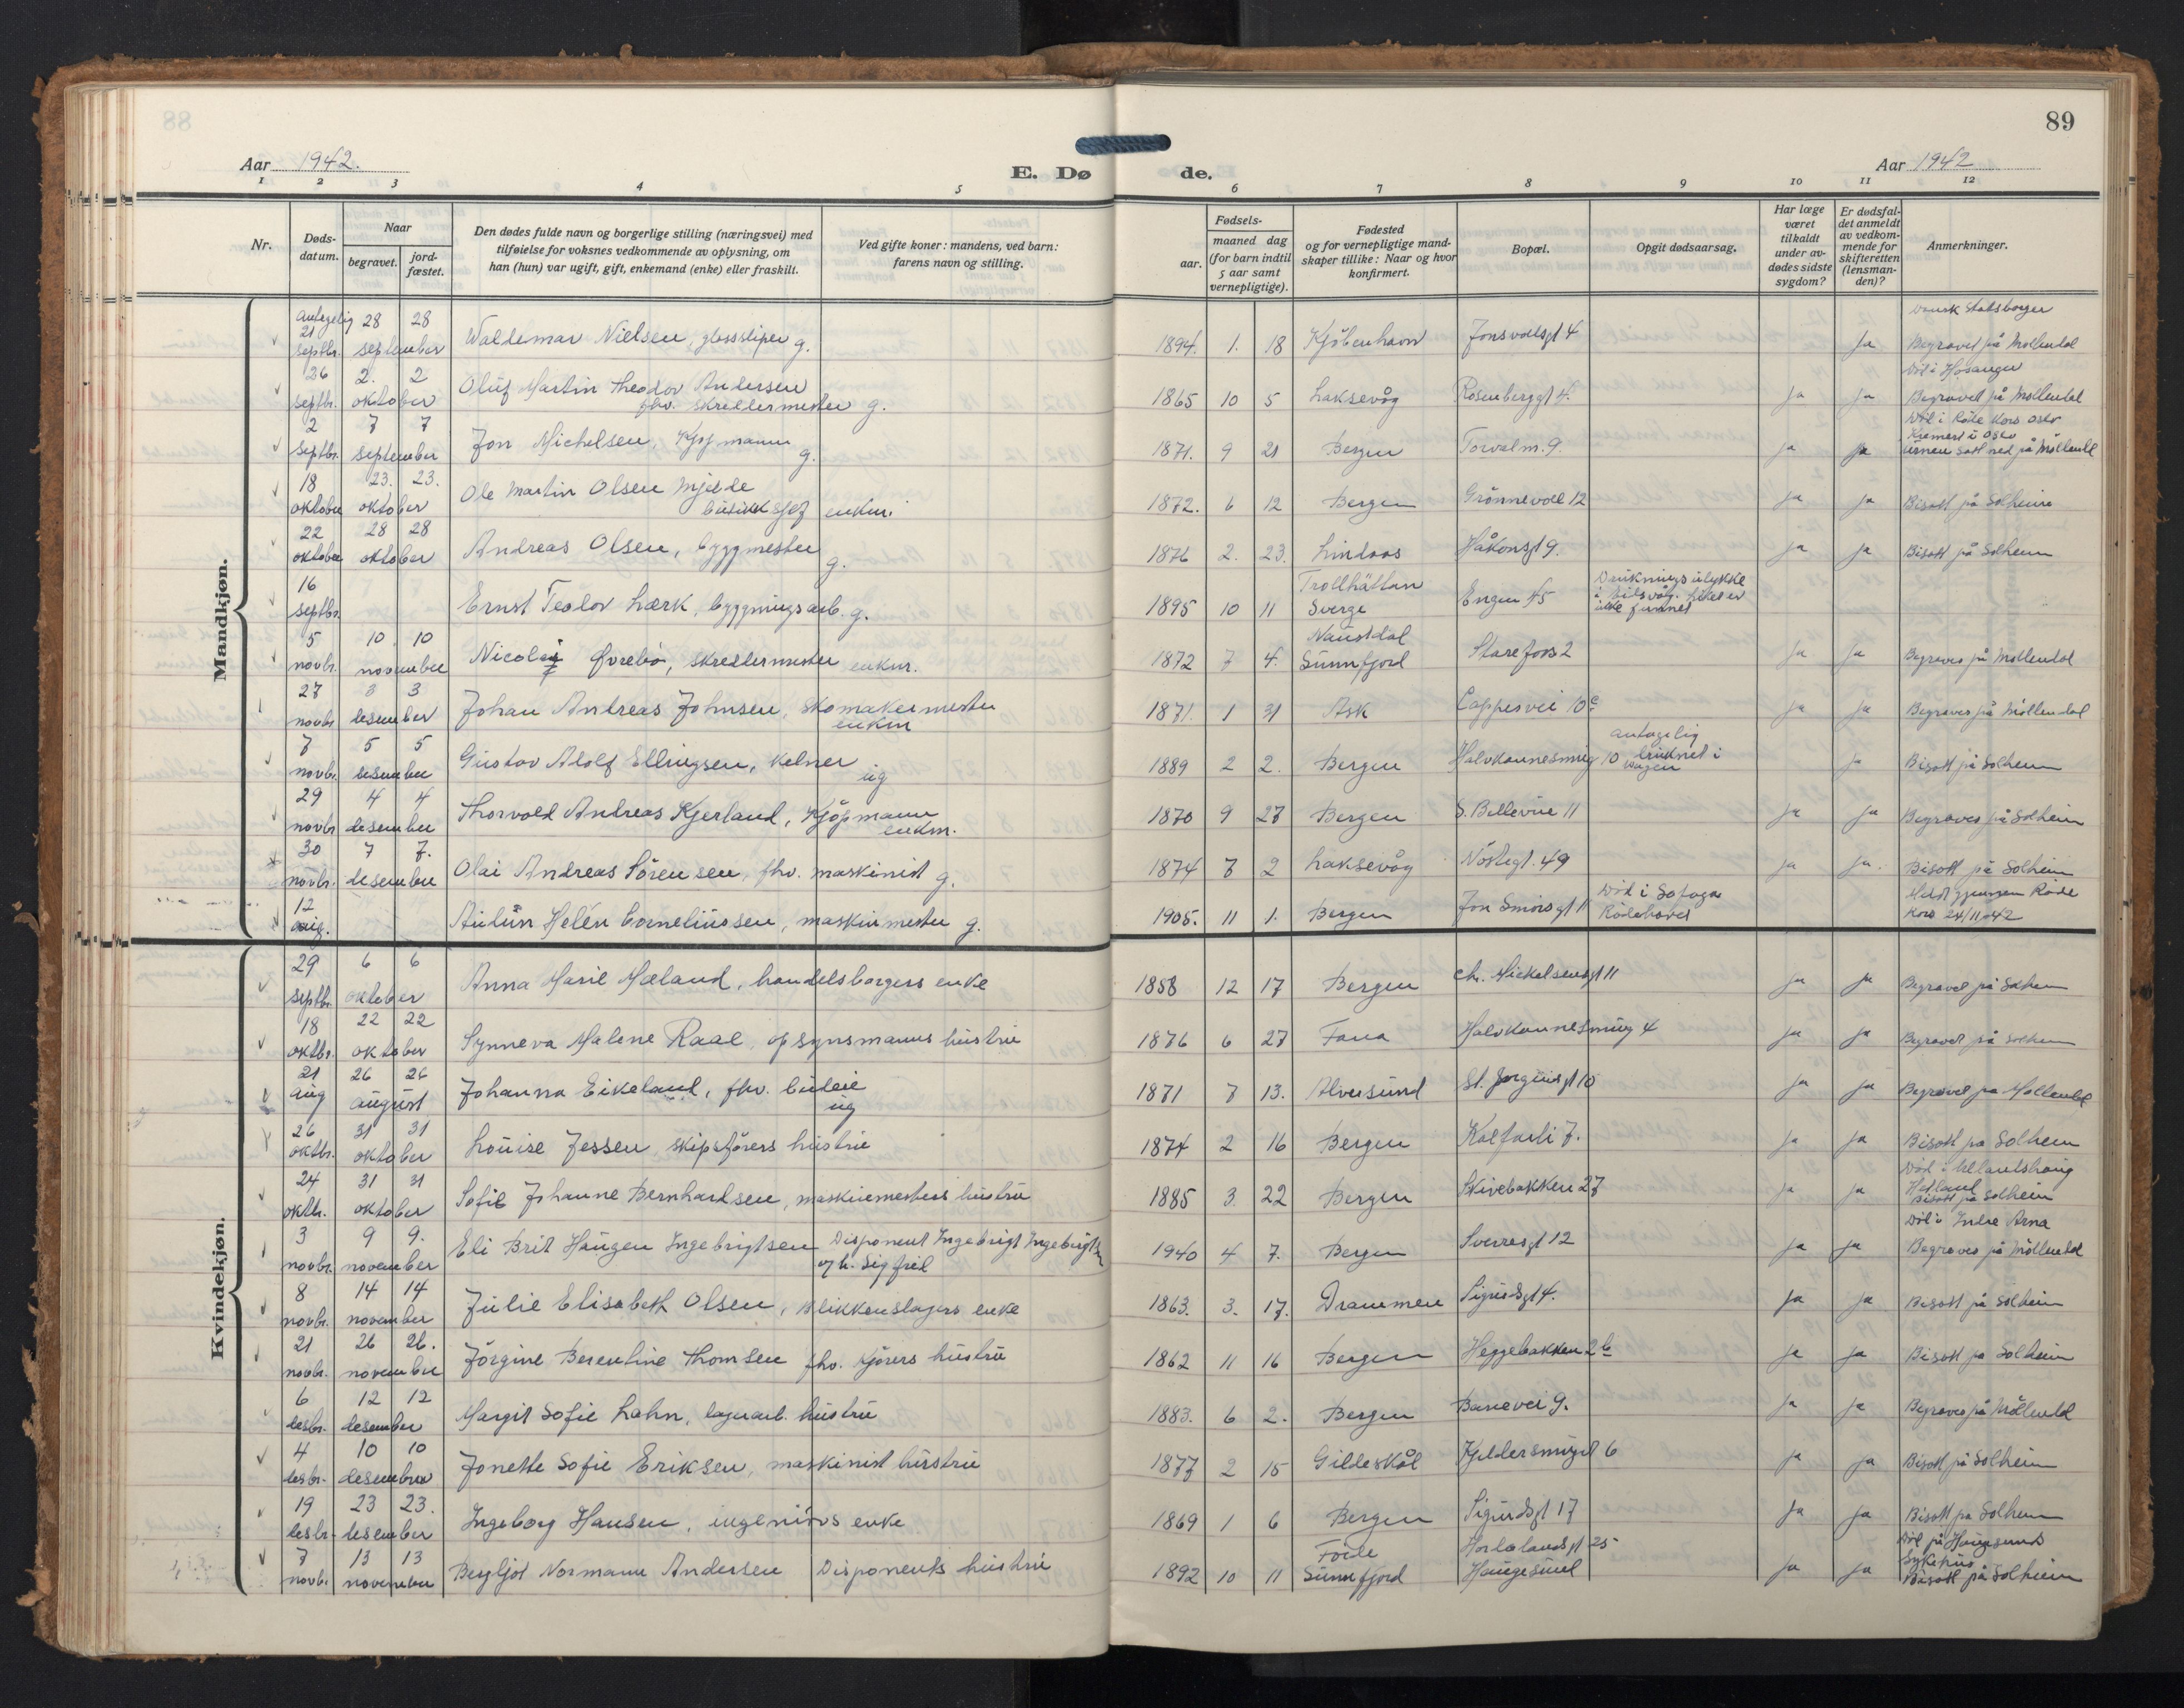 88
89
Aar 1942.
E. Dø
de.
Aar 1942
1 2 3 4 5 6 7 8 9 10 11 12
Nr.
Døds-
datum.
Naar
begravet.
jord-
fæstet.
Den dødes fulde navn og borgerlige stilling (næringsvei) med
tilføielse for voksnes vedkommende av oplysning, om
han (hun) var ugift, gift, enkemand (enke) eller fraskilt.
Ved gifte koner: mandens, ved barn:
farens navn og stilling.
Fødsels-
aar.
maaned dag
(for barn indtil
5 aar samt
vernepligtige).
Fødested
og for vernepligtige mand-
skaper tillike: Naar og hvor
konfirmert.
Bopæl.
Opgit dødsaarsag.
Har læge
været
tilkaldt
under av-
dødes sidste
sygdom?
Er dødsfal-
det anmeldt
av vedkom-
mende for
skifteretten
(lensman-
den)?
Anmerkninger.
Mandkjøn.
Antagelig 28 28 Dansk Statsborger
21 septbr. september Waldemar Nielsen, glassliper g. 1894. 1. 18 Kjøbenhavn Jonsvollsgt 4 Ja Begravet på Møllendal
26 2. 2 Død i Hosanger
septbr. oktober Oluf Martin Theodor Andersen fhv. skreddermester g. 1865 10 5 Laksevåg Rosenberggt 4. Ja Ja Begravet på Møllendal
2 7 7 Død i Røde Kors Oslo
Kremert i Oslo
septbr. september Jon Michelsen, Kjøpmann g. 1871. 9 21 Bergen Torvalm. 9. Ja Ja Urnen satt ned på Møllendal
18 23. 23.
oktober oktober Ole Martin Olsen Mjelde butikksjef enkm. 1872. 6 12 Bergen Grønnevoll 12 Ja Ja Bisatt på Solheim
22 28 28
oktober oktober Andreas Olsen, byggmester g. 1876 2. 23. Lindaas Håkonsgt 9. Ja Ja Bisatt på Solheim
16
septbr. Ernst Teodor Lærk, bygningsarb. g. 1895 10 11 Trollhättan Sverge Engen 45 Drukningsulykke
ikke funnet
5 10. 10
novbr. november Nicolai Øvrebø, skreddermester enkm. 1872 7 4. Naustdal Sunnfjord Starefoss 2 Ja Ja Begraves på Møllendal
27 3 3
novbr. desember Johan Andreas Johnsen, skomakermester enkm 1871. 1 31 Ask Cappesvei 10c Ja Ja Begraves på Møllendal
7 5 5
novbr. desember Gustav Adolf Ellingsen, kelner ug 1889 2 2. Bergen Halvkannesmug 10 antagelig druknet i vågen Ja Bisatt på Solheim
29 4 4
novbr desember Thorvald Andreas Kjerland, Kjøpmann enkm. 1870 9 27 Bergen S. Bellevue 11 Ja Ja Begraves på Solheim
30 7 7.
novbr. desember Olai Andreas Sørensen, fhv. maskinist g. 1874 7 2 Laksevåg Nøstegt. 49 Ja Ja. Bisatt på Solheim
12
aug. Helén Corneliussen, maskinmester g. 1905. 11 1. Bergen Jon Smørsgt 11 Død i
Rødehavet Meldt gjennem Røde
Kors 24/11 42
Kvindekjøn.
29 6 6
septbr. oktober Anna Marie Mæland, handelsborgers enke 1858 12 17 Bergen Chr. Michelsensgt 11 Ja Ja Begravet på Solheim
18 22 22
oktbr. oktober Synneva Malene Raae, opsynsmanns hustru 1876 6 27 Fana Halvkannesmug 4 Ja Ja Begravet på Solheim
21 26 26
aug august Johanna Eikeland, fhv. budeie ug 1871 7 13. Alversund St. Jørgensgt 10 Ja Ja Begravet på Møllendal
26 31 31
oktbr. oktober Louise Jessen skipsførers hustru 1874 2 16 Bergen Kalfarli 7. Ja Ja Bisatt på Solheim
24 31 31
oktbr. oktober Sofie Johanne Bernhardsen, maskinmesters hustru 1885 3. 22 Bergen Skivebakken 27 Ja Ja Død i Ullandshaug
Hetland
Bisatt på Solheim
3 9 9. Død i Indre Arna
novbr. november Eli Brit Haugen Ingebrigtsen Disponent Ingebrigt Ingebrigtsn
og h. Sigfrid 1940 4 7. Bergen Sverresgt 12 Ja Ja Begraves på Møllendal
8 14 14
novbr. november Julie Elisabeth Olsen, Blikkenslagers enke 1863. 3. 17. Drammen Sigurdsgt 4. Ja Ja Bisatt på Solheim
21 26 26.
novbr. november Jørgine Berentine Thomsen fhv. kjørers hustru 1862 11 16 Bergen Heggebakken 2b Ja Ja Bisatt på Solheim
6 12 12
desbr. desember Margit Sofie Lahn, lagerarb. hustru 1883. 6 2. Bergen Banevei 9. Ja Ja Begraves på Møllendal
4 10 10
desbr. desember Jonette Sofie Eriksen, maskinist hustru 1877 2 15 Gildeskål Kjeldersmuget 6 Ja Ja Bisatt på Solheim
19 23 23.
desbr. desember Ingeborg Hansen, ingeniørs enke 1869 1 6 Bergen Sigurdsgt 17 Ja Ja Bisatt på Solheim
7 13 13 Død på Haugesunds
Sykehus
novbr. november Bergljot Normann Andersen Disponents hustru 1892 10 11 Førde Sunnfjord Hordalandsgt 25 Haugesund Ja Ja Bisatt på Solheim